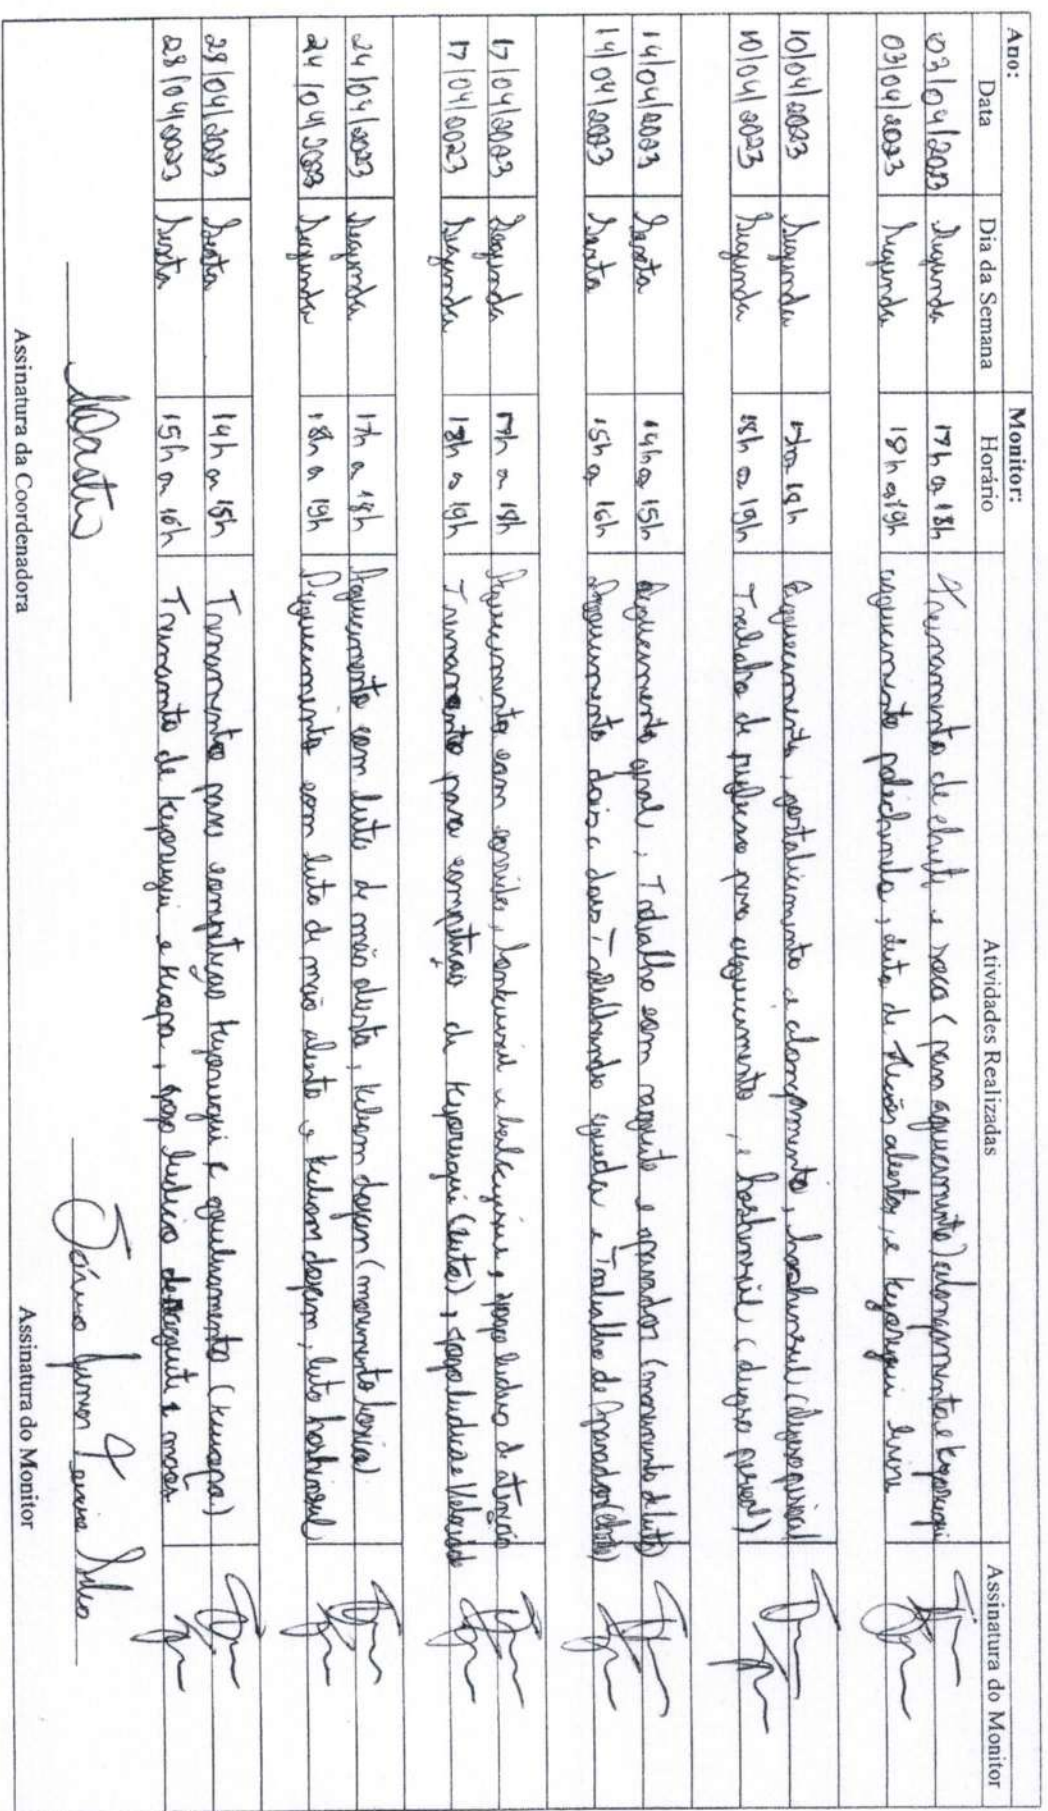 Ano: Monitor:
Data Dia da Semana Horário Atividades Realizadas Assinatura do Monitor
03/04/2023 Segunda 17h a 18h Treinamento de chute e soco (para aquecimento) alongamento e kyorugui
03/04/2023 Segunda 18h a 19h aquecimento polichinelo, luta de mãos abertas, e kyorugui
10/04/2023 Segunda 17h a 18h Aquecimento, fortalecimento e alongamento, hoshinsul (defesa pessoal)
10/04/2023 Segunda 18h a 19h Trabalho de reflexo para aquecimento, e hoshinsul (defesa pessoal)
14/04/2023 Sexta 14h a 15h Aquecimento geral, Trabalho com raquete e aparador (movimento de luta)
14/04/2023 Sexta 15h a 16h Aquecimento dois a dois, trabalhando guarda e Trabalho de Aparador (chute)
17/04/2023 Segunda 17h a 18h Aquecimento com corrida, e jogo ludico de atenção
17/04/2023 Segunda 18h a 19h Treinamento para competição de Kyorugui (luta), jogo ludico e Velocidade
24/04/2023 Segunda 17h a 18h Aquecimento com luta de mão aberta, kibom dojan (movimento basico)
24/04/2023 Segunda 18h a 19h Aquecimento com luta de mão aberta e kibom dojan, luta hoshinsul
28/04/2023 Sexta 14h a 15h Treinamento para competição kyorugui e (kiopa)
28/04/2023 Sexta 15h a 16h Treinamento de kyorugui e kiopa, jogo ludico de raquete e mãos
Junior Silva
Assinatura da Coordenadora Assinatura do Monitor